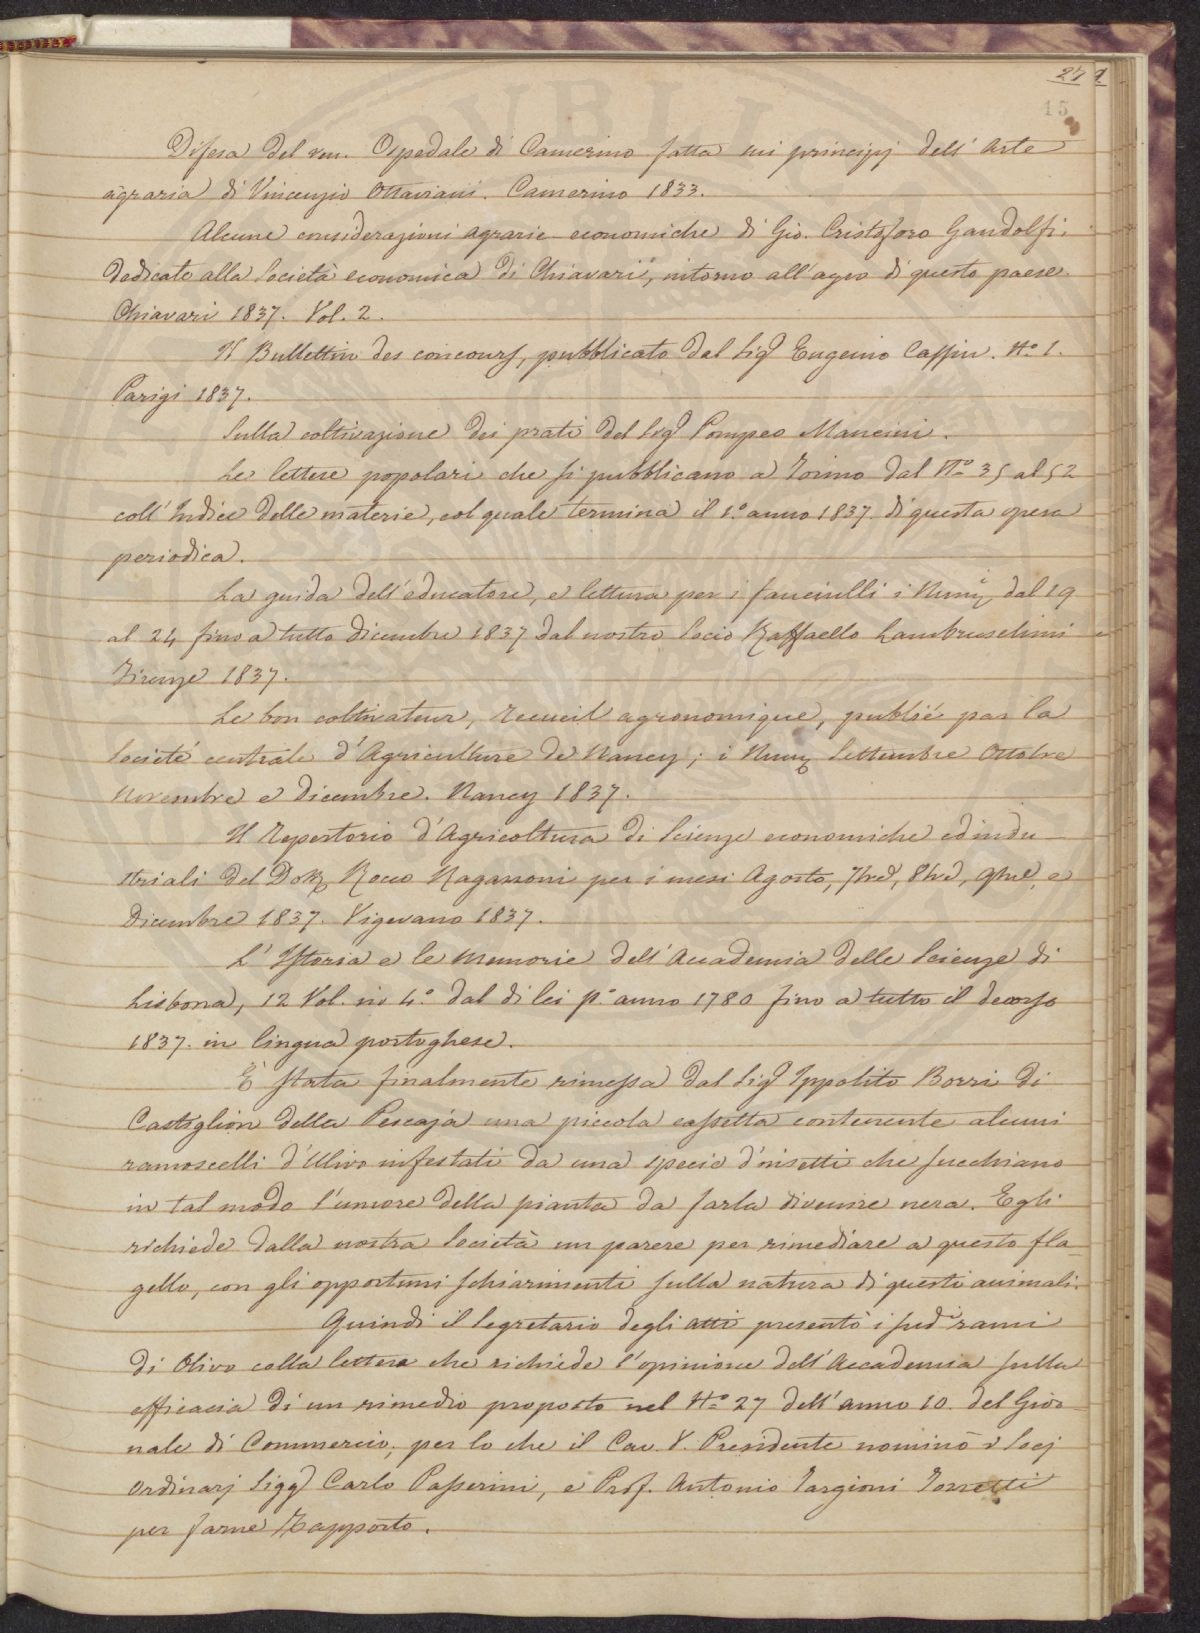 271
15
Difesa del ven. Ospedale di Camerino fatta sui principj dell'Arte
agraria di Vincenzio Ottaviani. Camerino 1833.
Alcune considerazioni agrarie economiche di Gio. Cristoforo Gandolfi,
dedicate alla Società economica di Chiavari, intorno all'agro di questo paese.
Chiavari 1837. Vol. 2.
Il Bullettin des concours, pubblicato dal Sigr Eugenio Cassin. No. 1.
Parigi 1837.
Sulla coltivazione dei prati del Sigr Pompeo Mancini.
Le lettere popolari che si pubblicano a Torino dal No 35 al 52
coll'Indice delle materie, col quale termina il 1.o anno 1837. di questa opera
periodica.
La guida dell'educatore, e lettura per i fanciulli i Numi dal 19
al 24 fino a tutto dicembre 1837 dal nostro Socio Raffaello Lambruschini
Firenze 1837.
Le bon coltivateur, recueil agronomique, publié par la
Societé centrale d'Agriculture de Nancy; i Num. Settembre Ottobre
Novembre e Dicembre. Nancy 1837.
Il Repertorio d'Agricoltura di Scienze economiche ed indu
striali del Dott. Rocco Ragazzoni per i mesi Agosto, 7bre, 8bre, 9bre, e
Dicembre 1837. Vigevano 1837.
L'Istoria e le Memorie dell'Accademia delle Scienze di
Lisbona, 12 Vol. in 4.o dal di lei p.o anno 1780 fino a tutto il decorso
1837. in lingua portoghese.
È stata finalmente rimessa dal Sigr Ippolito Borri di
Castiglion della Pescaja una piccola cassetta contenente alcuni
ramoscelli d'Ulivo infestati da una specie d'insetti che succhiano
in tal modo l'umore della pianta da farla divenire nera. Egli
richiede dalla nostra Società un parere per rimediare a questo fla-
gello, con gli opportuni schiarimenti sulla natura di questi animali.
Quindi il Segretario degli atti presentò i sudi rami
di Olivo colla lettera che richiede l'opinione dell'Accademia sulla
efficacia di un rimedio proposto nel No. 27 dell'anno 10. del Gior-
nale di Commercio, per lo che il Cav. V. Presidente nominò i Socj
ordinarj Sigg. Carlo Passerini, e Prof. Antonio Targioni Tozzetti
per farne Rapporto.